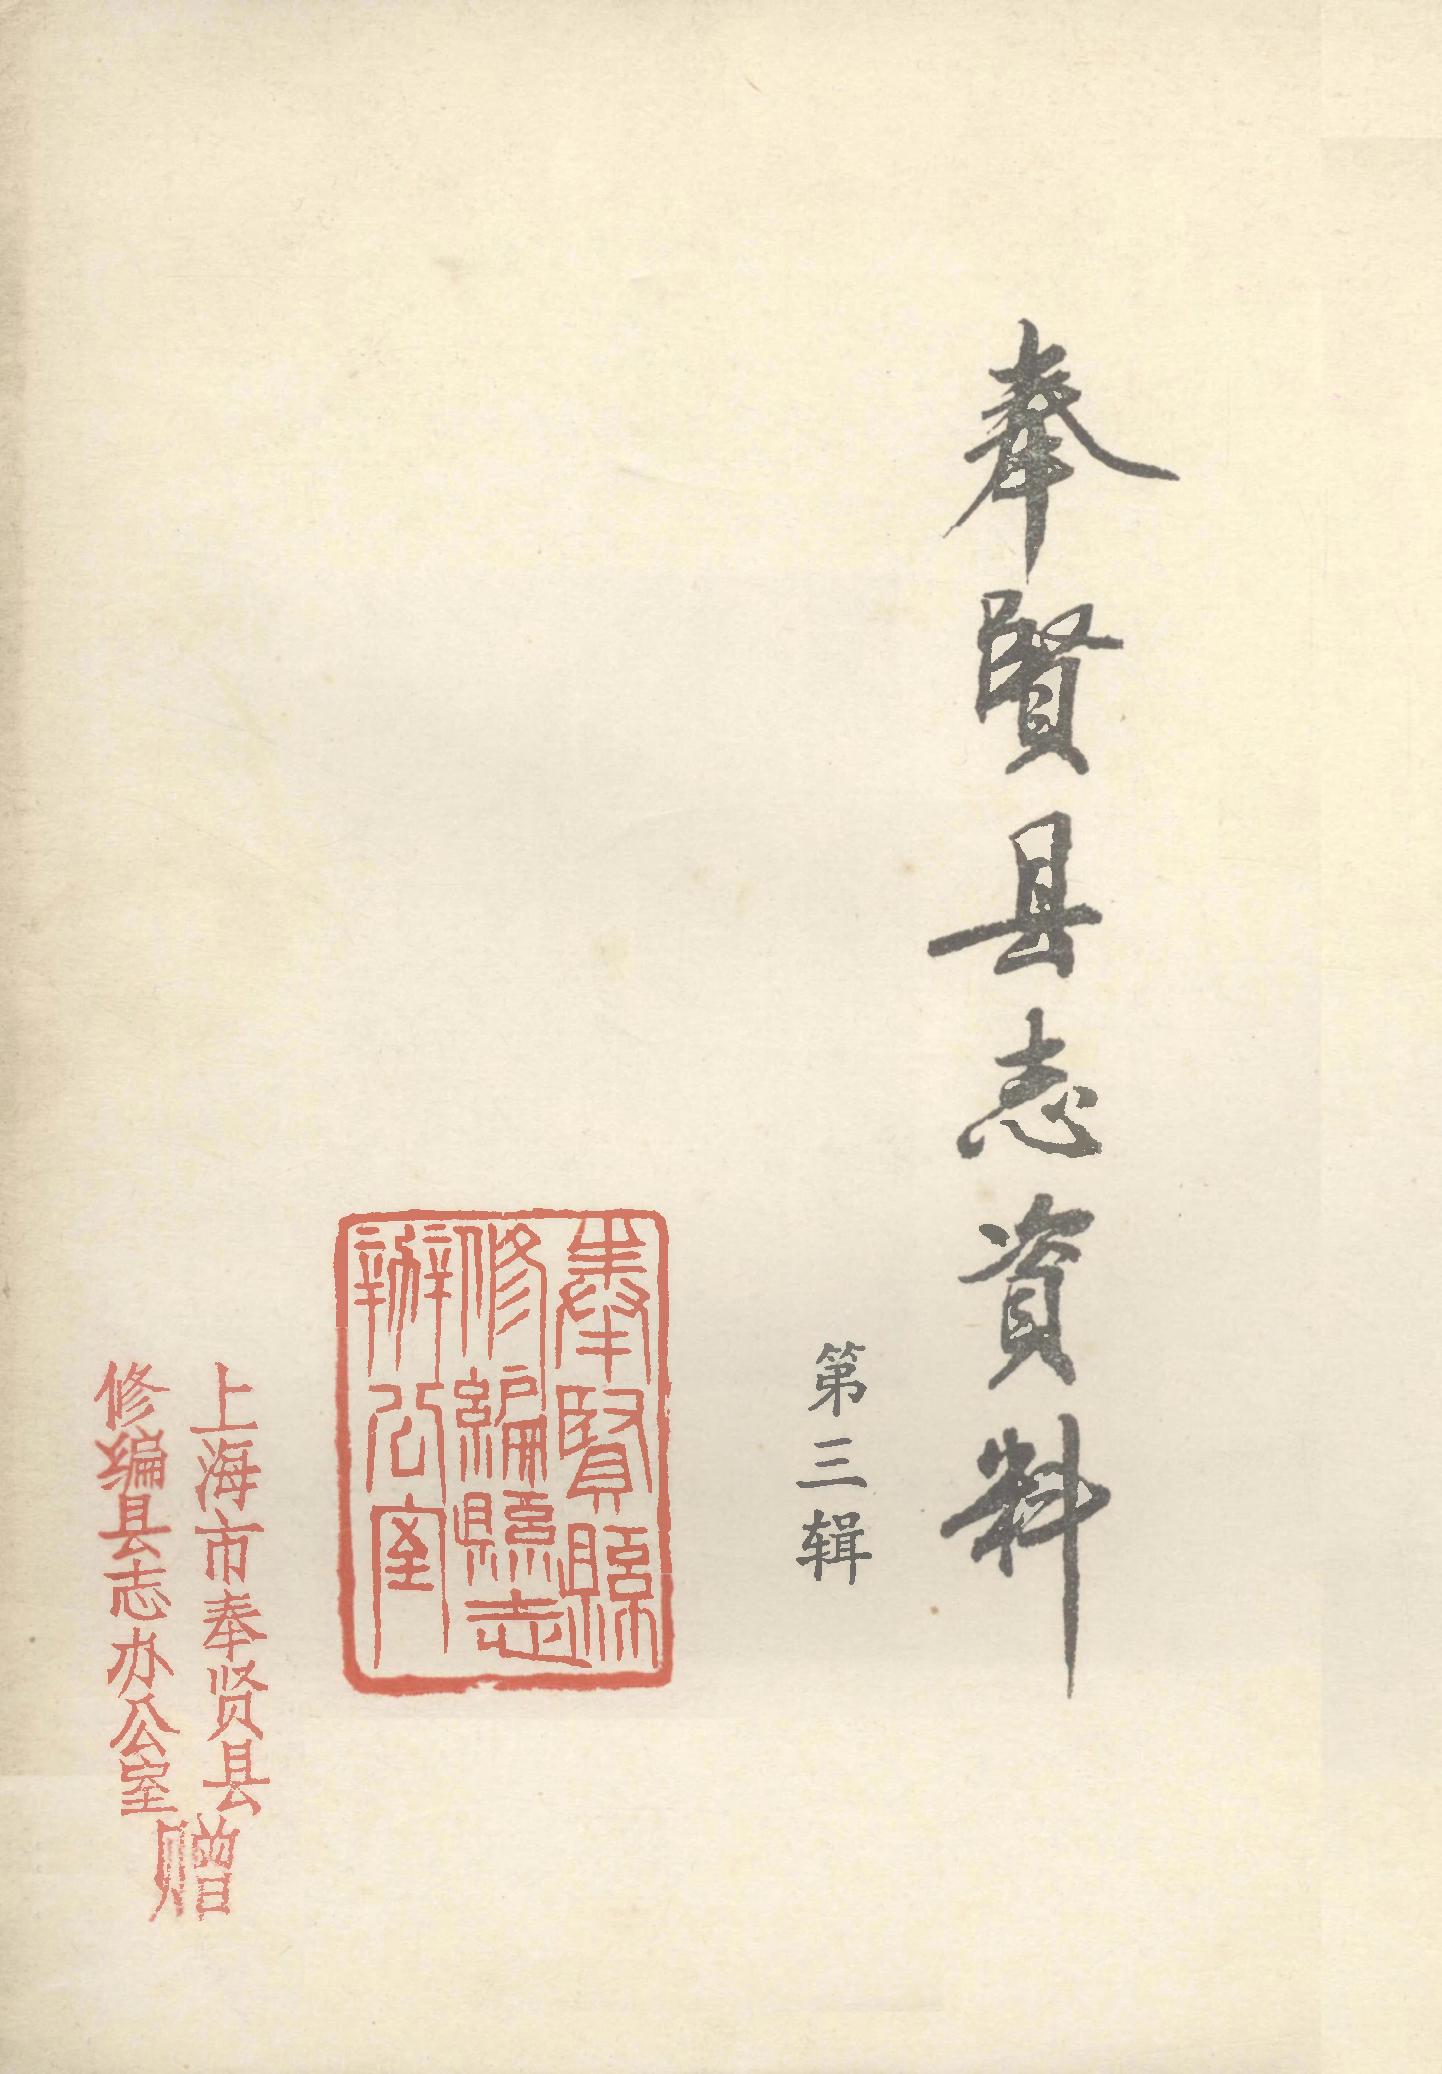 奉賢县志資料
第三辑
奉賢縣
修編縣志
辦公室
上海市奉贤县
修编县志办公室
赠